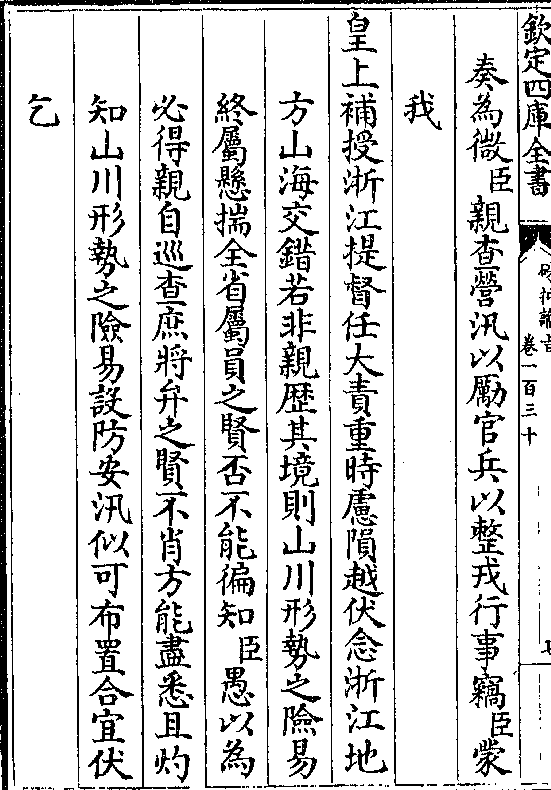 欽定四庫全書
硃批諭旨 卷一百三十
奏為微臣親查營汛以勵官兵以整戎行事竊臣蒙
我
皇上補授浙江提督任大責重時慮隕越伏念浙江地
方山海交錯若非親歴其境則山川形勢之險易
終屬懸揣全省屬員之賢否不能徧知臣愚以為
必得親自巡查庶將弁之賢不肖方能盡悉且灼
知山川形勢之險易設防安汛似可布置合宜伏
乞